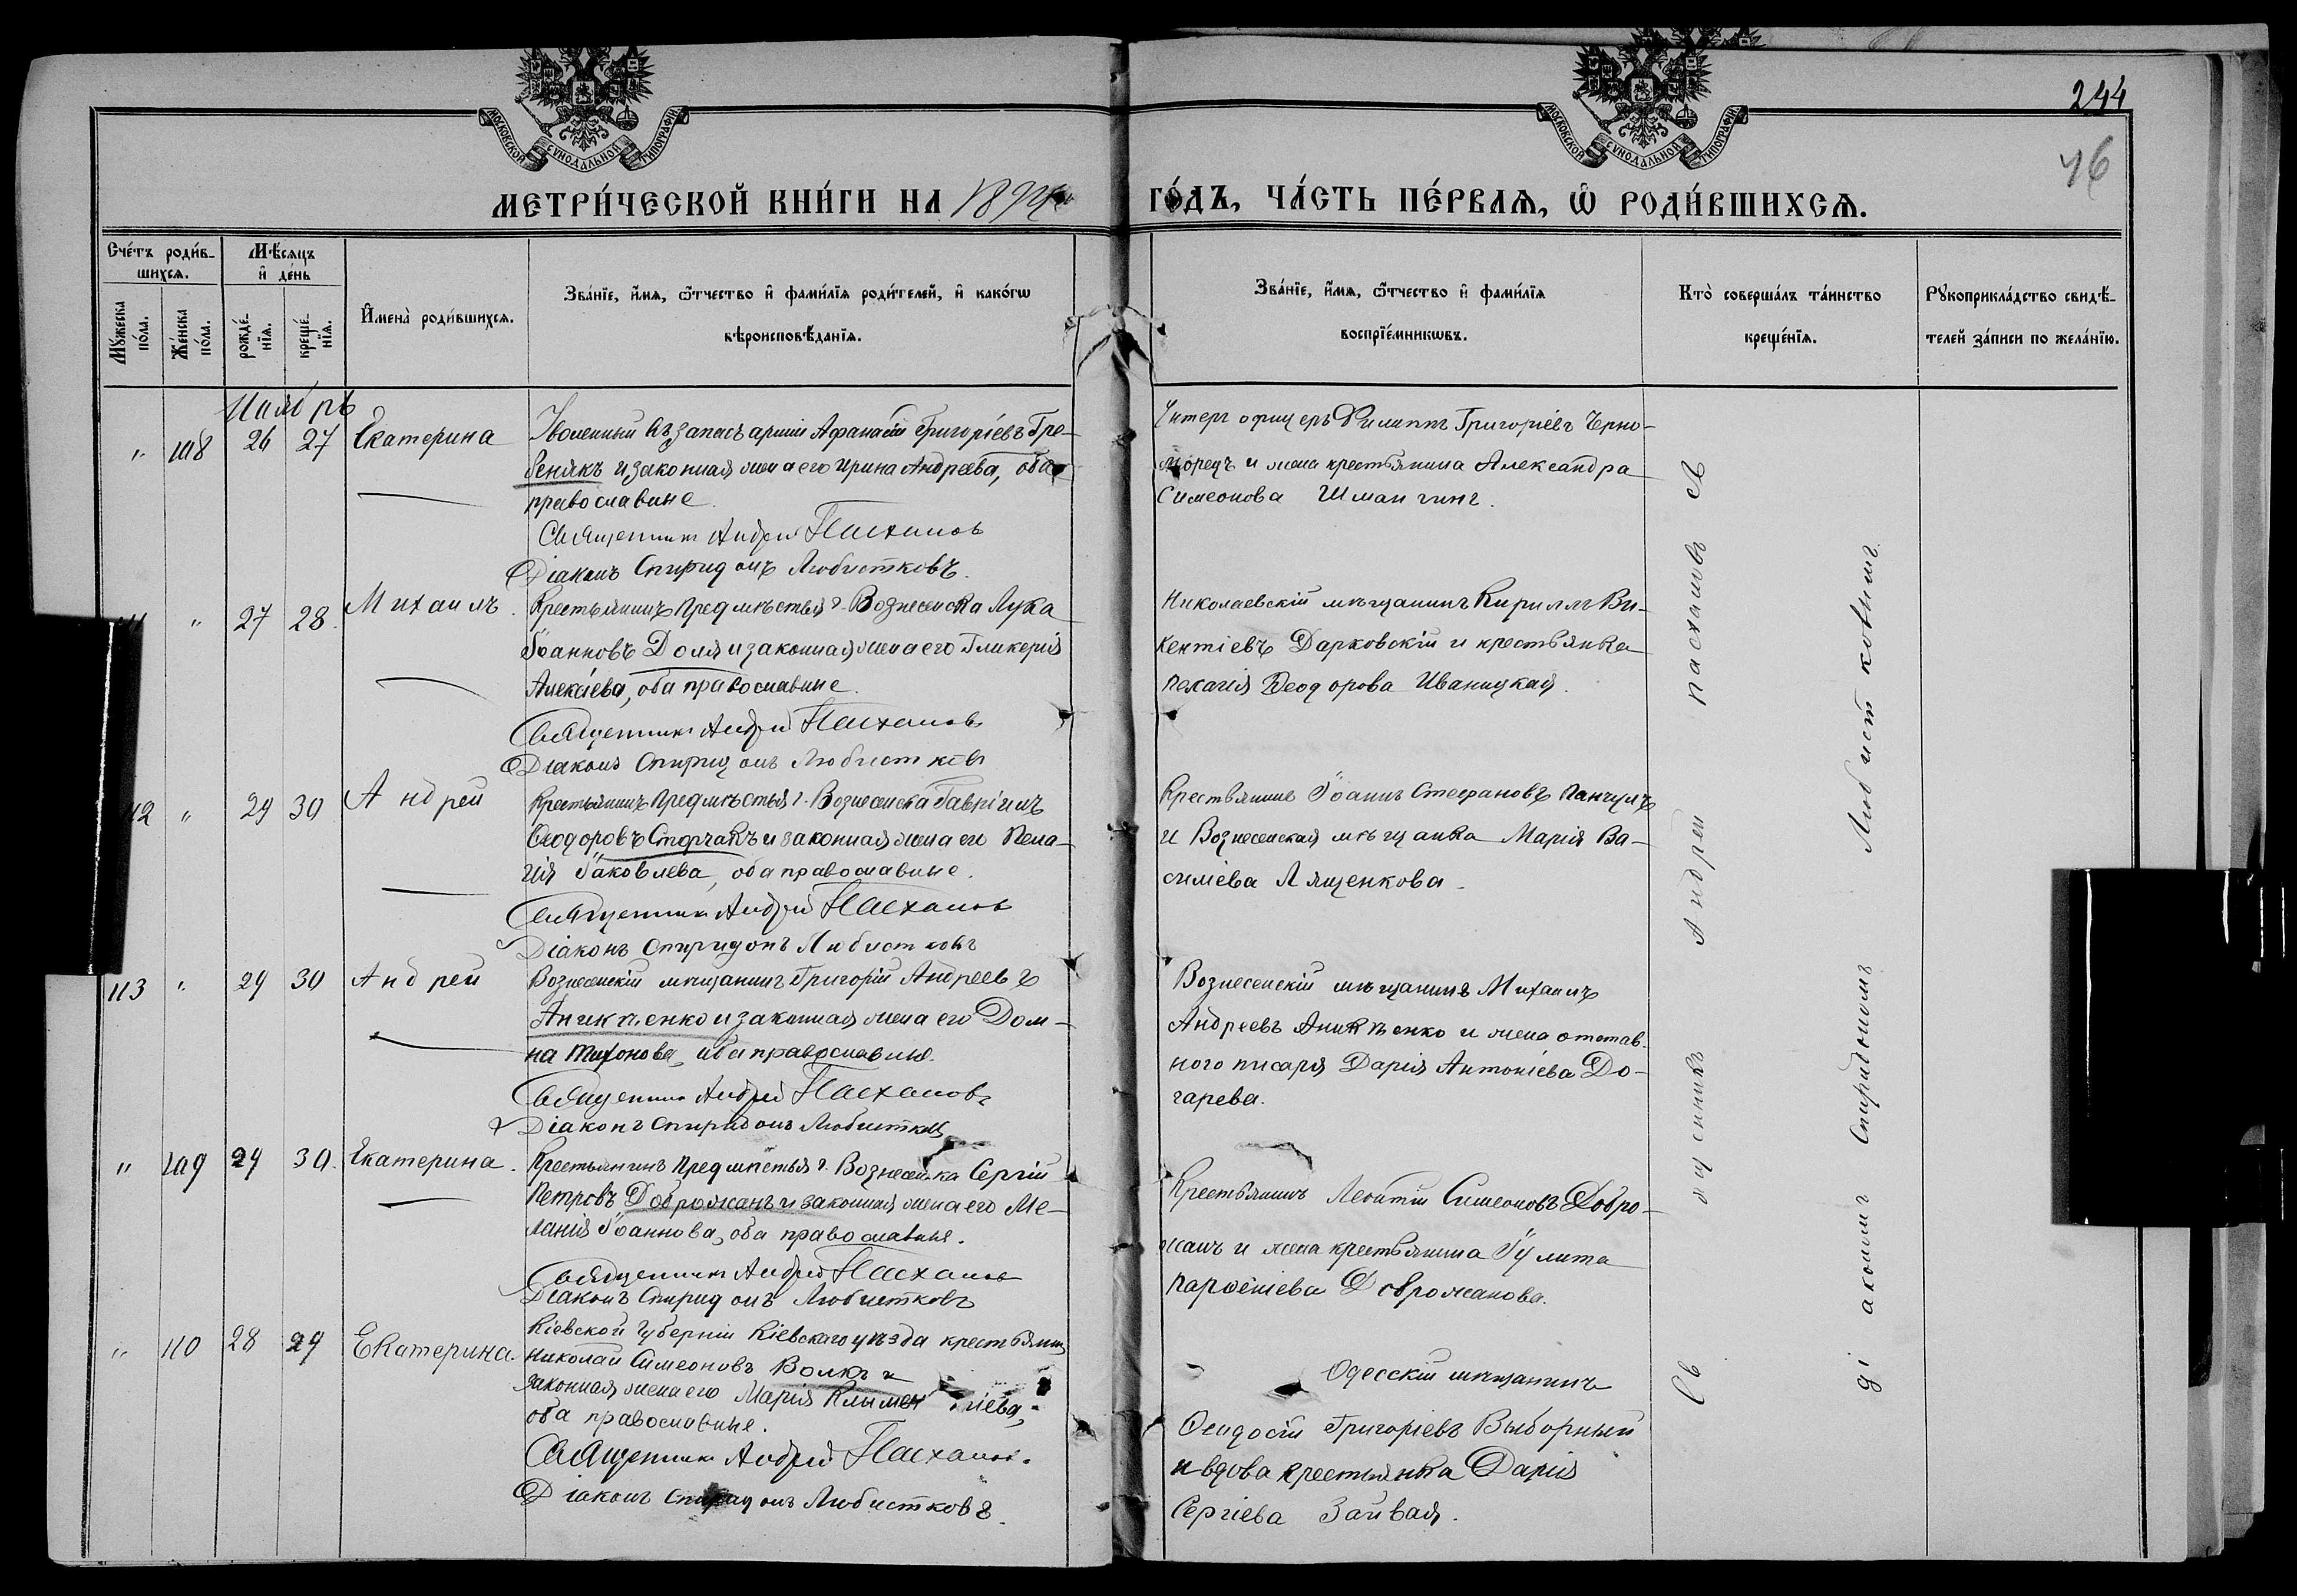 МОСКОВСКОЙ СУНОДАЛЬНОЙ ТИПОГРАФІИ
МОСКОВСКОЙ СУНОДАЛЬНОЙ ТИПОГРАФІИ
244
46
МЕТРИ́ЧЕСКОЙ КНИ́ГИ НА 1894
ГО́ДЪ, ЧА́СТЬ ПЕ́РВАЯ, Ѡ РОДИ́ВШИХСЯ.
Сче́тъ роди́в-
шихся.
Му́жеска по́ла.
Же́нска по́ла.
Мѣ́сяцъ
и де́нь
рожде́-нїя.
креще́-нїя.
Имена̀ роди́вшихся.
Зва́нїе, и́мя, ѻ҆́тчество и фами́лїя роди́телей, и како́гѡ
вѣроисповѣ́данїя.
Зва́нїе, и́мя, ѻ҆́тчество и фами́лїя
воспрїе́мникѡвъ.
Кто̀ соверша́лъ та́инство
креще́нїя.
Рꙋкоприкла́дство свидѣ́-
телей за́писи по жела́нїю.
Ноябрь
" 108 26 27 Екатерина
Уволенный въ запасъ арміи Афанасій Григоріевъ Гре-
бенякъ и законная жена его Ирина Андреева, оба
православные.
Священникъ Андрей Пасхаловъ
Діаконъ Спиридонъ Любистковъ.
Унтеръ офицеръ Филиппъ Григоріевъ Черно-
морецъ и жена крестьянина Александра
Симеонова
" 27 28. Михаилъ.
Крестьянинъ Предмѣстья г. Вознесенска Лука
Іоанновъ Доля и законная жена его Гликерія
Алексіева, оба православные.
Священникъ Андрей Пасхаловъ
Діаконъ Спиридонъ Любистковъ
Николаевскій мѣщанинъ Кириллъ Ви-
кентіевъ Дарковскій и крестьянка
Пелагія Ѳеодорова Иваницкая.
112 " 29 30 Андрей
Крестьянинъ Предмѣстья г. Вознесенска Гавріилъ
Ѳеодоровъ Сторчакъ и законная жена его Пела-
гія Іаковлева, оба православные.
Священникъ Андрей Пасхаловъ
Діаконъ Спиридонъ Любистковъ
Крестьянинъ Іоаннъ Стефановъ Панчулъ
и Вознесенская мѣщанка Марія Ва-
силіева Лященкова.
113 " 29 30 Андрей
Вознесенскій мѣщанинъ Григорій Андреевъ
Аникѣенко и законная жена его Дом-
на Тихонова, оба православные.
Священникъ Андрей Пасхаловъ
Діаконъ Спиридонъ Любистковъ
Вознесенскій мѣщанинъ Михаилъ
Андреевъ Аникѣенко и жена отстав-
ного писаря Дарія Антоніева До-
гарева.
" 109 29 30. Екатерина.
Крестьянинъ Предмѣстья г. Вознесенска Сергій
Петровъ Доброжанъ и законная жена его Ме-
ланія Іоаннова, оба православные.
Священникъ Андрей Пасхаловъ
Діаконъ Спиридонъ Любистковъ
Крестьянинъ Леонтій Симеоновъ Добро-
жанъ и жена крестьянина Іулита
Парѳеніева Доброжанова.
" 110 28 29 Екатерина.
Кіевской губерніи Кіевскаго уѣзда крестьянинъ
Николай Симеоновъ Волкъ и
законная жена его Марія Климентіева,
оба православные.
Священникъ Андрей Пасхаловъ.
Діаконъ Спиридонъ Любистковъ.
Одесскій мѣщанинъ
Ѳеодосій Григоріевъ Выборный
и вдова крестьянка Дарія
Сергіева Зайвая.
Священникъ Андрей Пасхаловъ С
діакономъ Спиридономъ Любистковымъ.